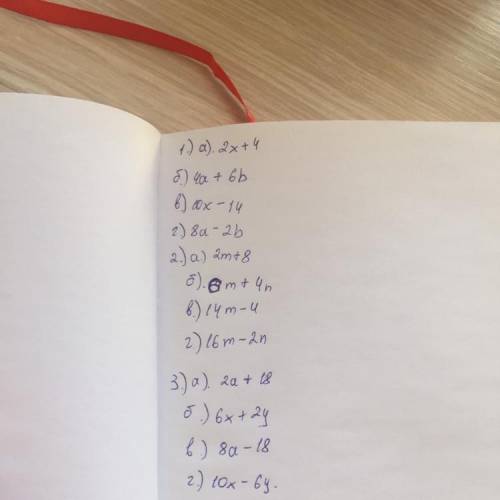 1.) а). 2x+4
б.) 4a + 6b
в) 10x - 14
г) 8a - 2b
2.) а) 2m+8
б). 6m + 4n
в.) 14m - 4
г) 16m - 2n
3.) а). 2a + 18
б.) 6x + 2y
в) 8a - 18
г.) 10x - 6y.